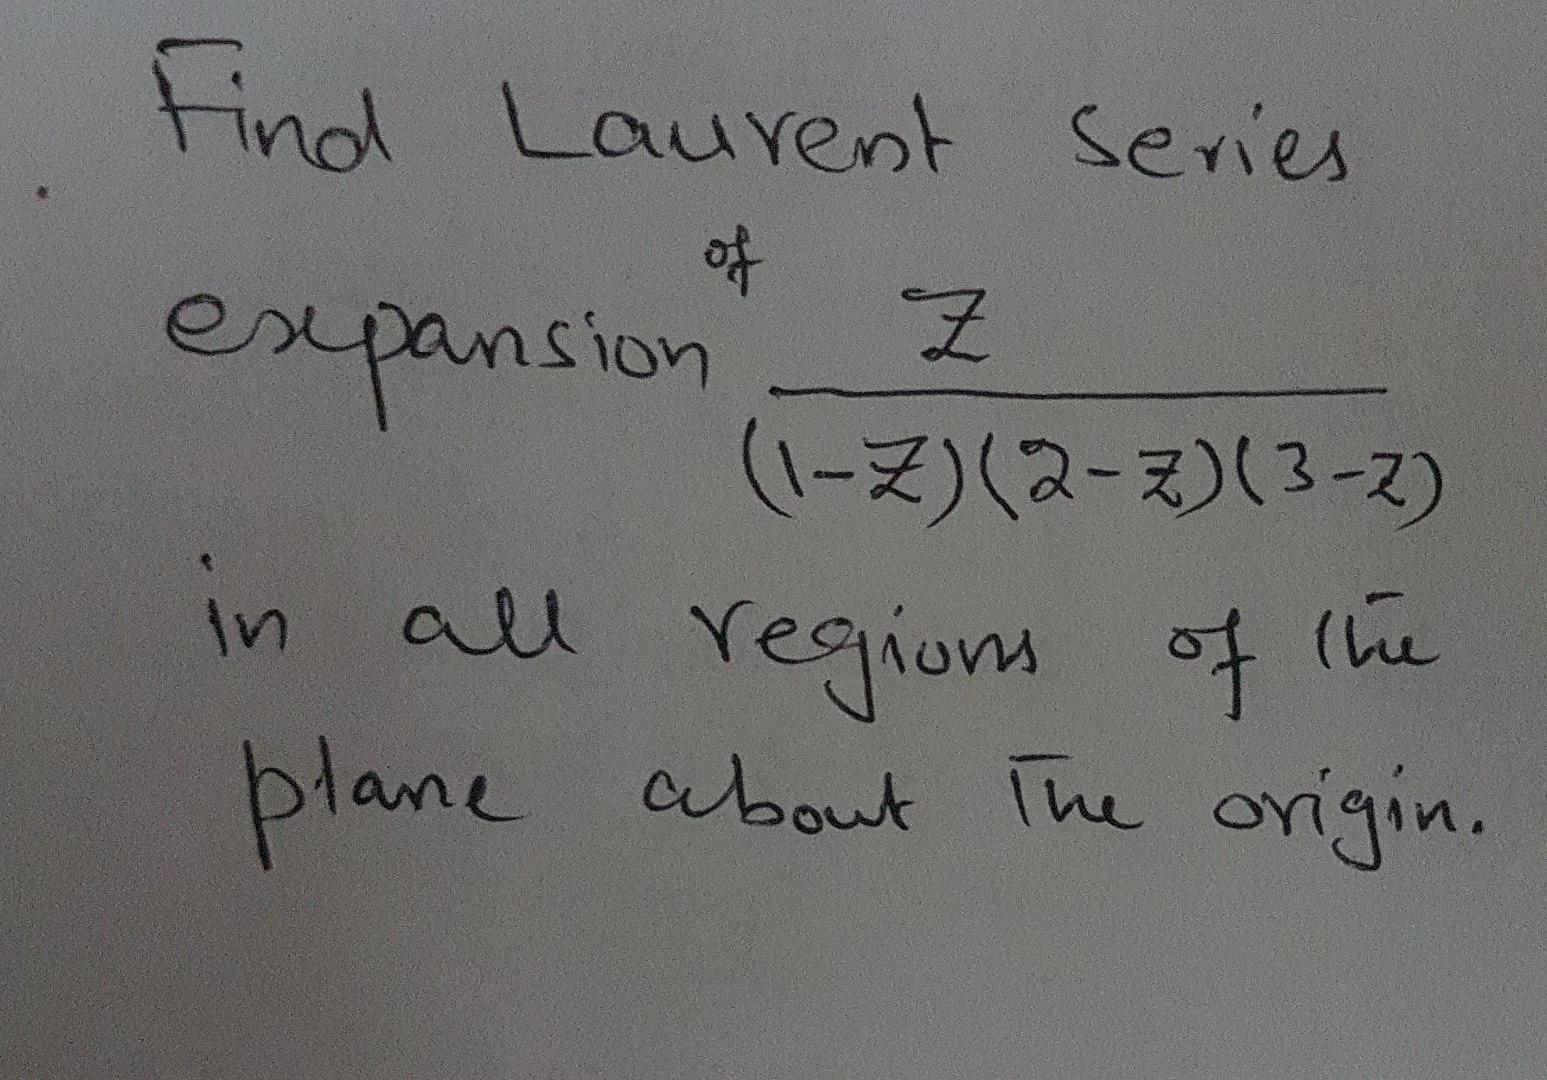 Find Laurent series
expansion of z / (1-z)(2-z)(3-z)
in all regions of the
plane about the origin.